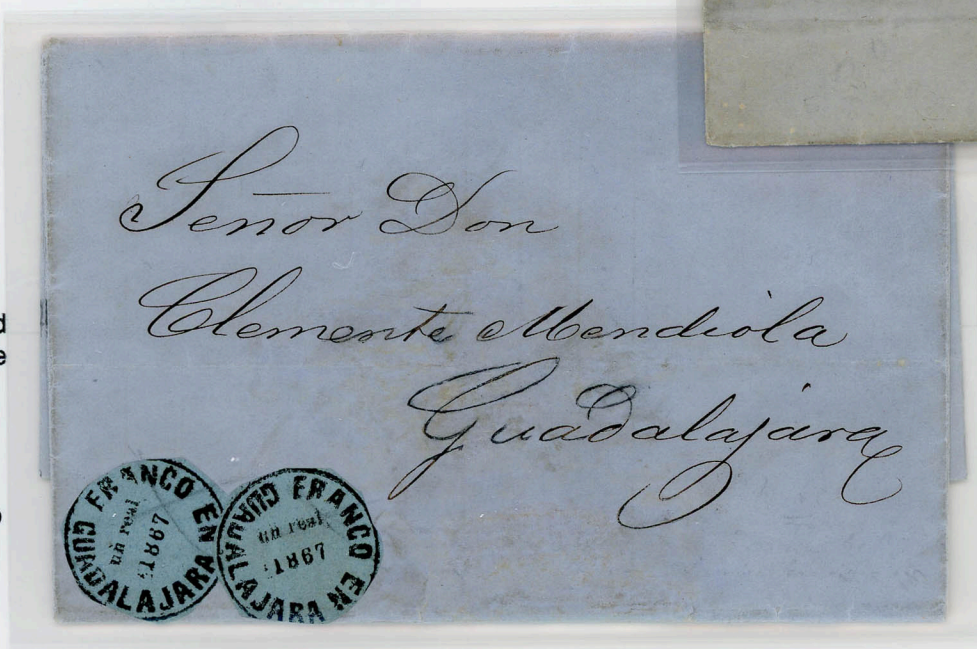 Señor Don
Clemente Mendiola
Guadalajara
FRANCO EN GUADALAJARA
un real
1867
FRANCO EN GUADALAJARA
un real
1867
d
e